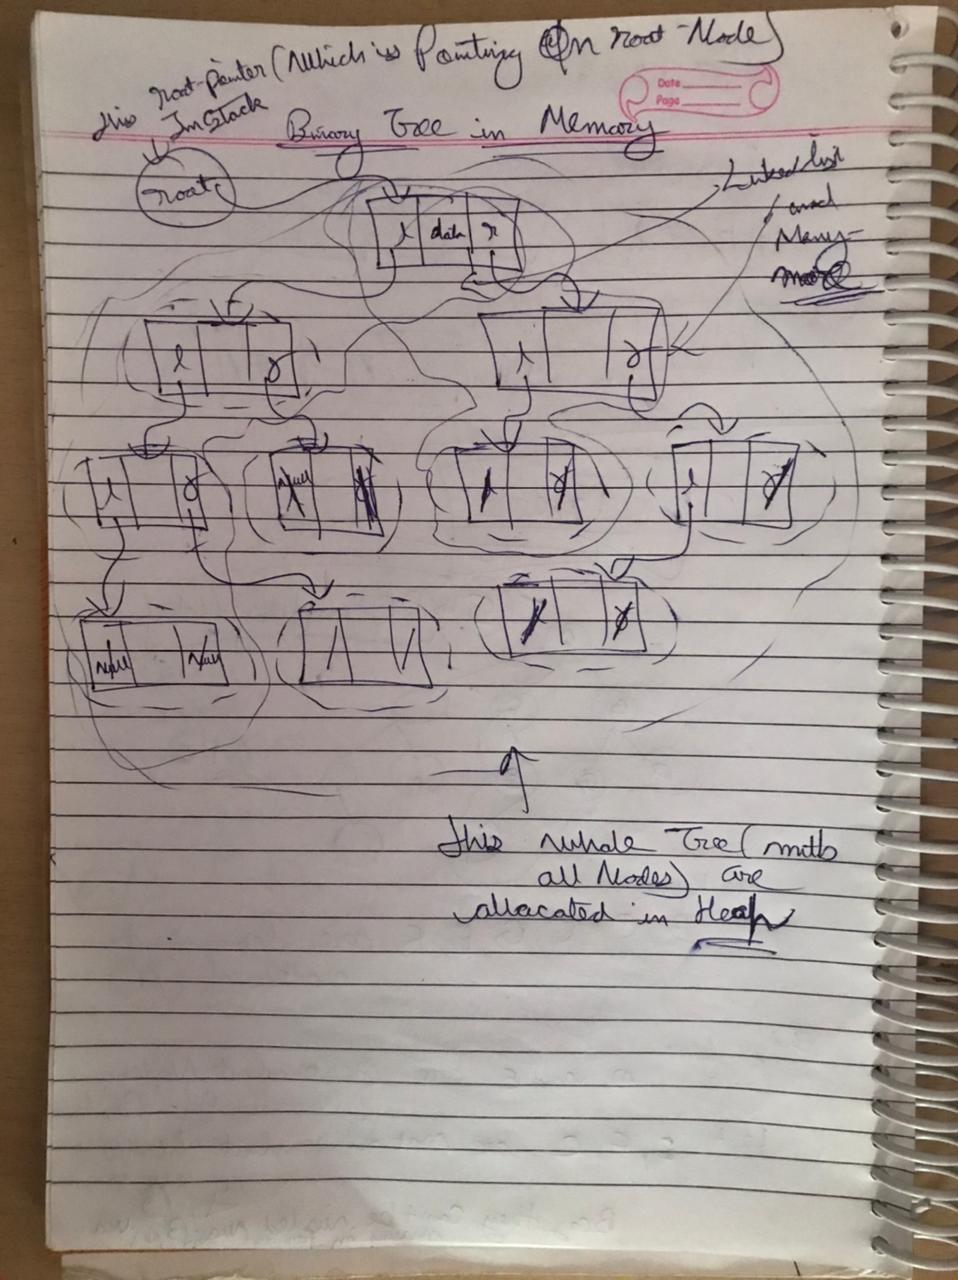 root-pointer (which is Pointing On root-Node)
this In Stack
Date
Page
Binary Tree in Memory
root
Linked list
and
Many-
more
l data r
l r
l r
l r
Null
l r
l r
Null Null
This whole Tree (with
all Nodes) are
allocated in Heap